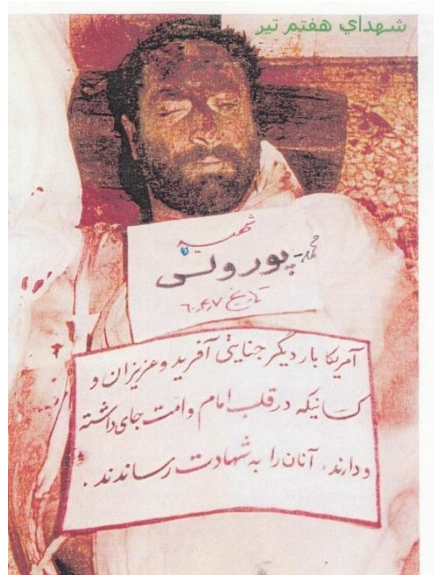 شهدای هفتم تیر
شهید
محمد پورولی
تاریخ ۶۰٫۴٫۷
آمریکا بار دیگر جنایتی آفرید و عزیزان و
کسانیکه در قلب امام و امت جای داشته
و دارند، آنان را به شهادت رساندند.